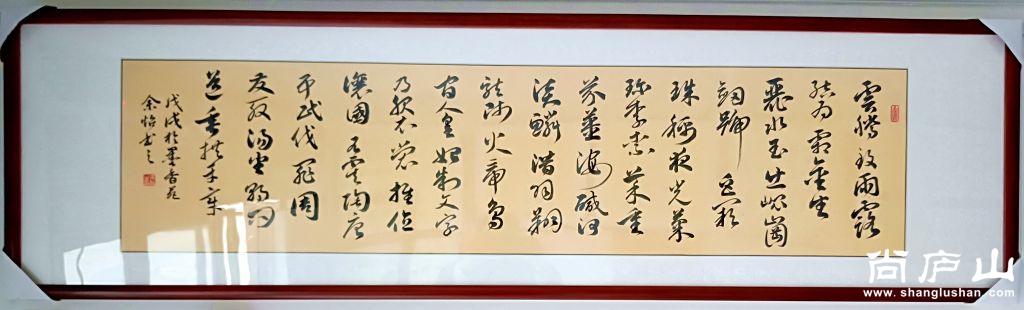 雲騰致雨露
結為霜金生
麗水玉出崐崗
劍號巨闕
珠稱夜光菓
珍李柰菜重
芥薑海鹹河
淡鱗潛羽翔
龍師火帝鳥
官人皇始制文字
乃服衣裳推位
讓國有虞陶唐
弔民伐罪周
發殷湯坐朝問
道垂拱平章
戊戌於墨香苑
余怡書之
尚庐山
www.shanglushan.com